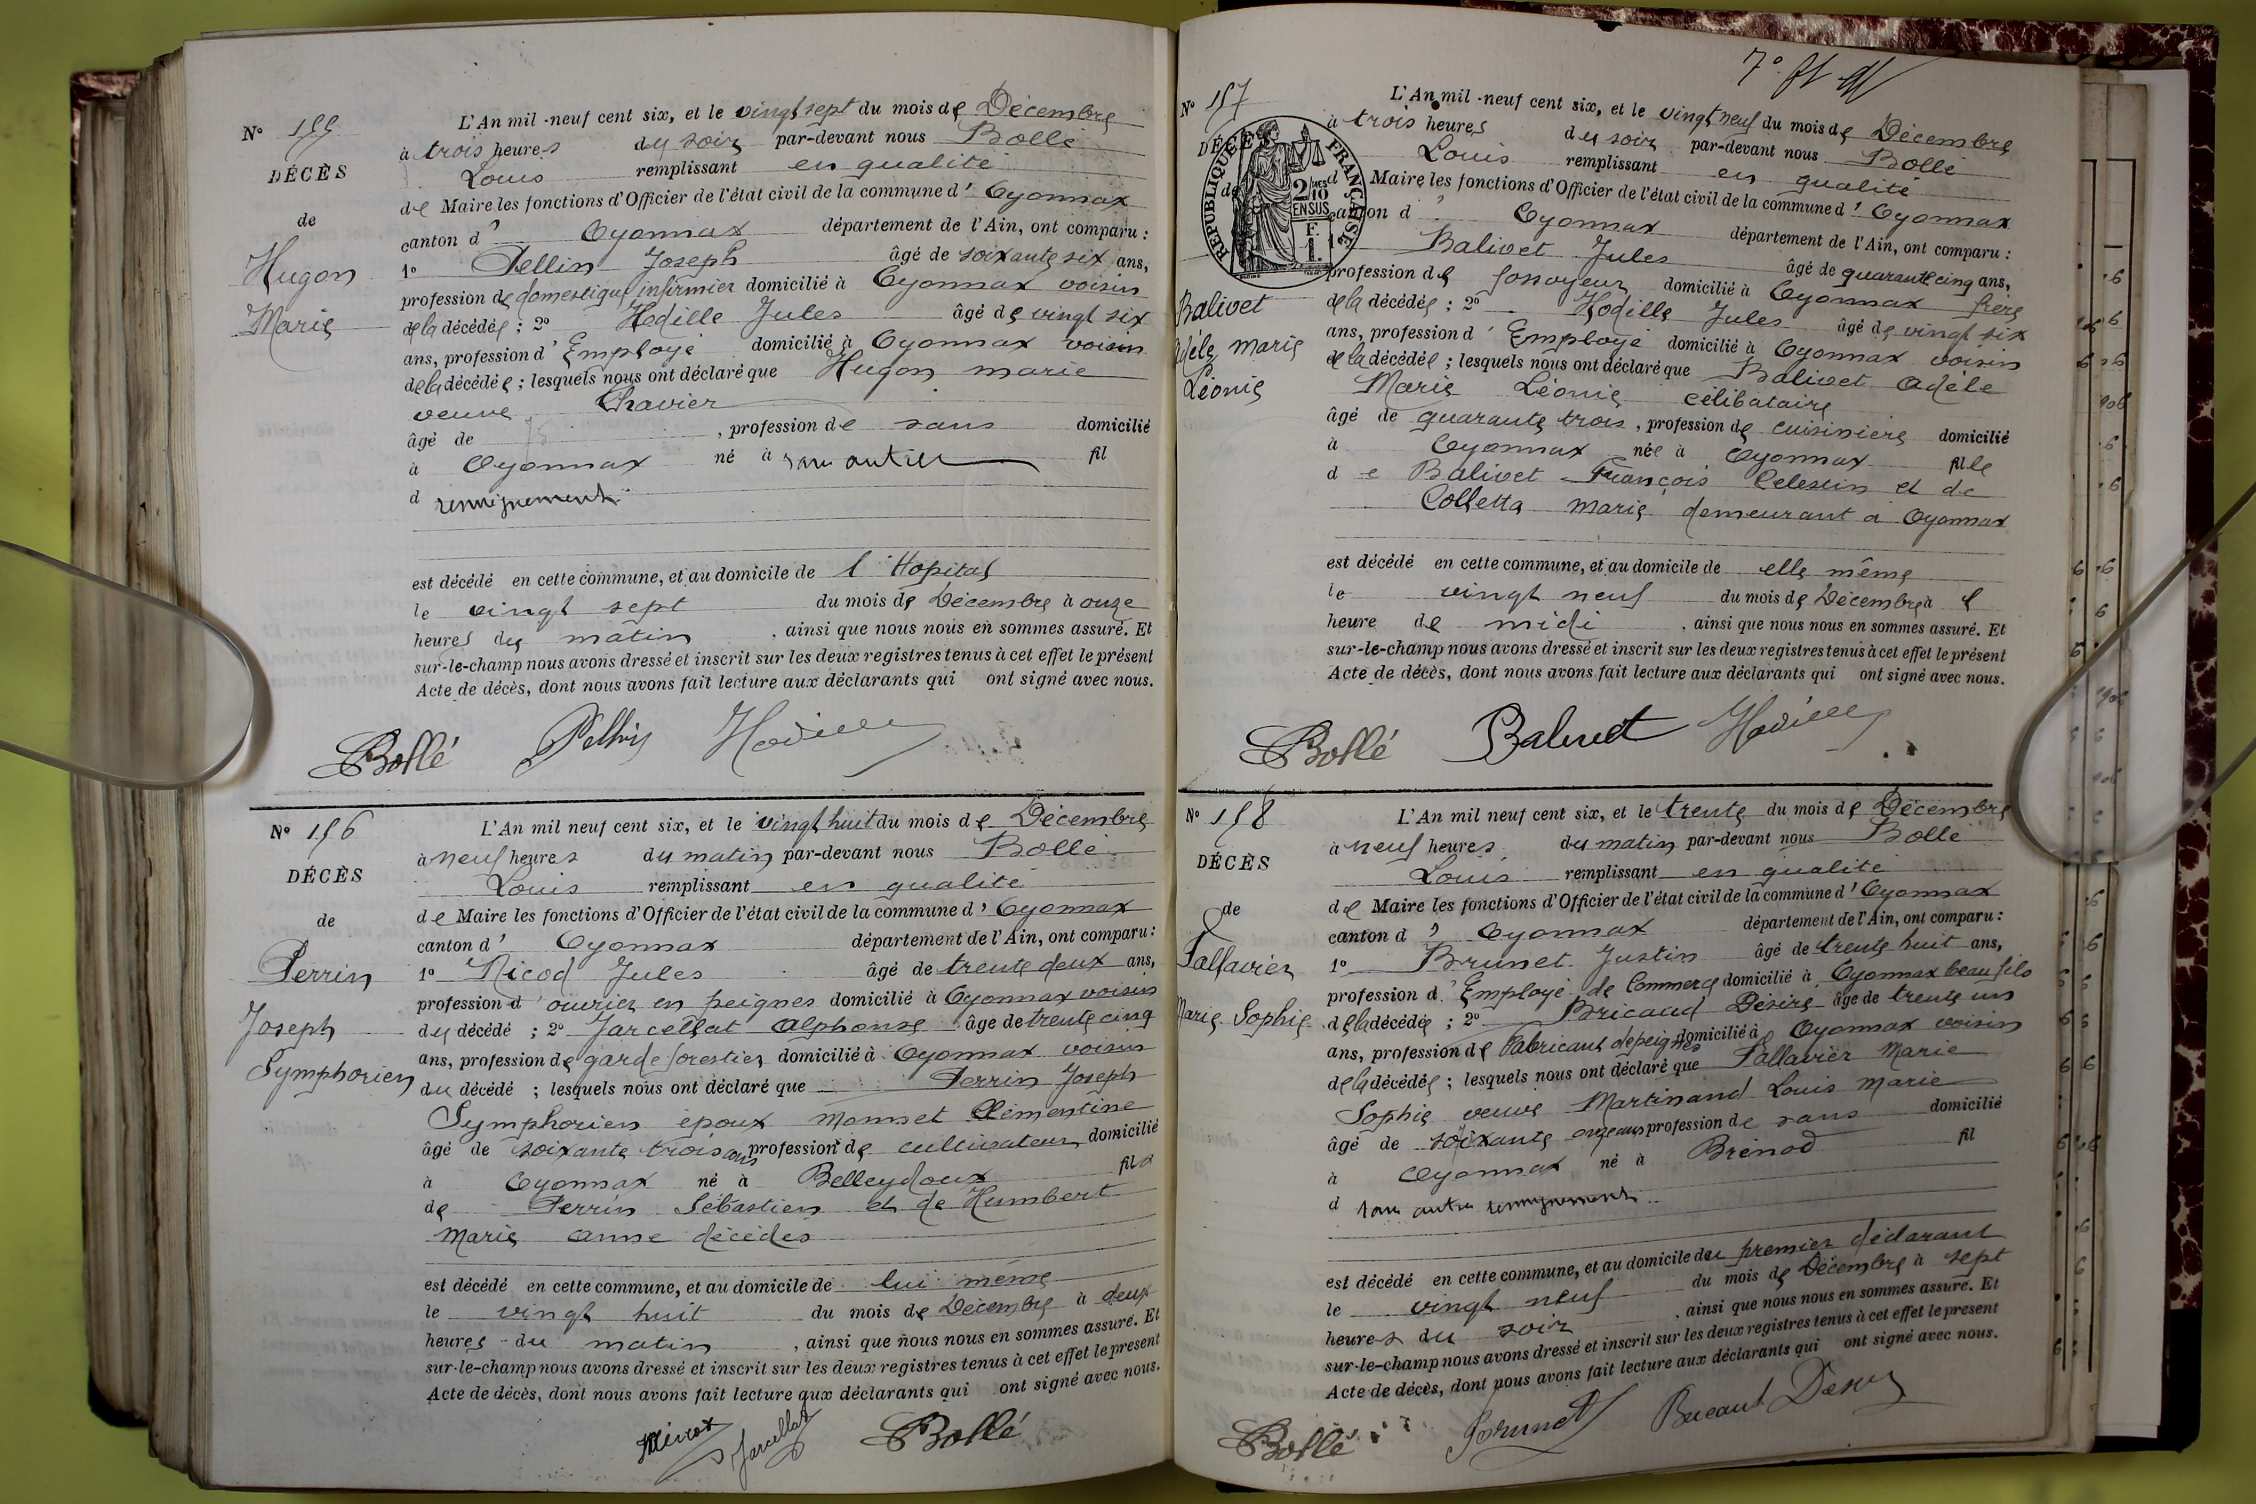 N° 155
DÉCÈS
de
Hugon
Marie
L'An mil-neuf cent six, et le vingt sept du mois de Décembre
à trois heures du soir par-devant nous Bollé
Louis remplissant en qualité
de Maire les fonctions d'Officier de l'état civil de la commune d'Oyonnax
canton d'Oyonnax département de l'Ain, ont comparu :
1° Pellin Joseph âgé de soixante six ans,
profession de domestique infirmier domicilié à Oyonnax voisin
de la décédée ; 2° Hodille Jules âgé de vingt six
ans, profession d'Employé domicilié à Oyonnax voisin
de la décédée ; lesquels nous ont déclaré que Hugon marie
veuve Chavier
âgé de 75 , profession de sans domicilié
à Oyonnax né à sans autres fil
d renseignements
est décédé en cette commune, et au domicile de l'Hopital
le vingt sept du mois de Décembre à onze
heures du matin , ainsi que nous nous en sommes assuré. Et
sur-le-champ nous avons dressé et inscrit sur les deux registres tenus à cet effet le présent
Acte de décès, dont nous avons fait lecture aux déclarants qui ont signé avec nous.
Bollé Pellin Hodille
N° 156
DÉCÈS
de
Perrin
Joseph
Symphorien
L'An mil neuf cent six, et le vingt huit du mois de Décembre
à neuf heures du matin par-devant nous Bollé
Louis remplissant en qualité
de Maire les fonctions d'Officier de l'état civil de la commune d'Oyonnax
canton d'Oyonnax département de l'Ain, ont comparu :
1° Nicod Jules âgé de trente deux ans,
profession d'ouvrier en peignes domicilié à Oyonnax voisin
du décédé ; 2° Jarcellat Alphonse âgé de trente cinq
ans, profession de garde forestier domicilié à Oyonnax voisin
du décédé ; lesquels nous ont déclaré que Perrin Joseph
Symphorien époux Monnet Clémentine
âgé de soixante trois ans profession de cultivateur domicilié
à Oyonnax né à Belleydoux fils
de Perrin Sébastien et de Humbert
Marie Anne décédés
est décédé en cette commune, et au domicile de lui même
le vingt huit du mois de Décembre à deux
heures du matin , ainsi que nous nous en sommes assuré. Et
sur-le-champ nous avons dressé et inscrit sur les deux registres tenus à cet effet le présent
Acte de décès, dont nous avons fait lecture aux déclarants qui ont signé avec nous.
Jarcellat Bollé
7°
N° 157
DÉCÈS
de
RÉPUBLIQUE FRANÇAISE
2/10 EN SUS
Balivet
Adèle marie
Léonie
L'An mil-neuf cent six, et le vingt neuf du mois de Décembre
à trois heures du soir par-devant nous Bollé
Louis remplissant en qualité
d Maire les fonctions d'Officier de l'état civil de la commune d'Oyonnax
canton d'Oyonnax département de l'Ain, ont comparu :
1° Balivet Jules âgé de quarante cinq ans,
profession de fossoyeur domicilié à Oyonnax frère
de la décédée ; 2° Hodille Jules âgé de vingt six
ans, profession d'Employé domicilié à Oyonnax voisin
de la décédée ; lesquels nous ont déclaré que Balivet Adèle
Marie Léonie célibataire
âgé de quarante trois , profession de cuisinière domicilié
à Oyonnax née à Oyonnax fille
de Balivet François Celestin et de
Colletta Marie demeurant a Oyonnax
est décédé en cette commune, et au domicile de elle même
le vingt neuf du mois de Décembre à l
heure de midi , ainsi que nous nous en sommes assuré. Et
sur-le-champ nous avons dressé et inscrit sur les deux registres tenus à cet effet le présent
Acte de décès, dont nous avons fait lecture aux déclarants qui ont signé avec nous.
Bollé Balivet Hodille
N° 158
DÉCÈS
de
Pallavier
Marie Sophie
L'An mil neuf cent six, et le trente du mois de Décembre
à neuf heures du matin par-devant nous Bollé
Louis remplissant en qualité
de Maire les fonctions d'Officier de l'état civil de la commune d'Oyonnax
canton d'Oyonnax département de l'Ain, ont comparu :
1° Brunet Justin âgé de trente huit ans,
profession d'Employé de Commerce domicilié à Oyonnax beau fils
de la décédée ; 2° Bricaud Désiré âgé de trente un
ans, profession de Fabricant de peignes domicilié à Oyonnax voisin
de la décédée ; lesquels nous ont déclaré que Pallavier Marie
Sophie veuve Martinand Louis Marie
âgé de soixante onze ans profession de sans domicilié
à Oyonnax né à Brénod fil
d sans autres renseignements
est décédé en cette commune, et au domicile du premier déclarant
le vingt neuf du mois de Décembre à sept
heures du soir , ainsi que nous nous en sommes assuré. Et
sur-le-champ nous avons dressé et inscrit sur les deux registres tenus à cet effet le présent
Acte de décès, dont nous avons fait lecture aux déclarants qui ont signé avec nous.
Bollé Brunet Bricaud Désiré